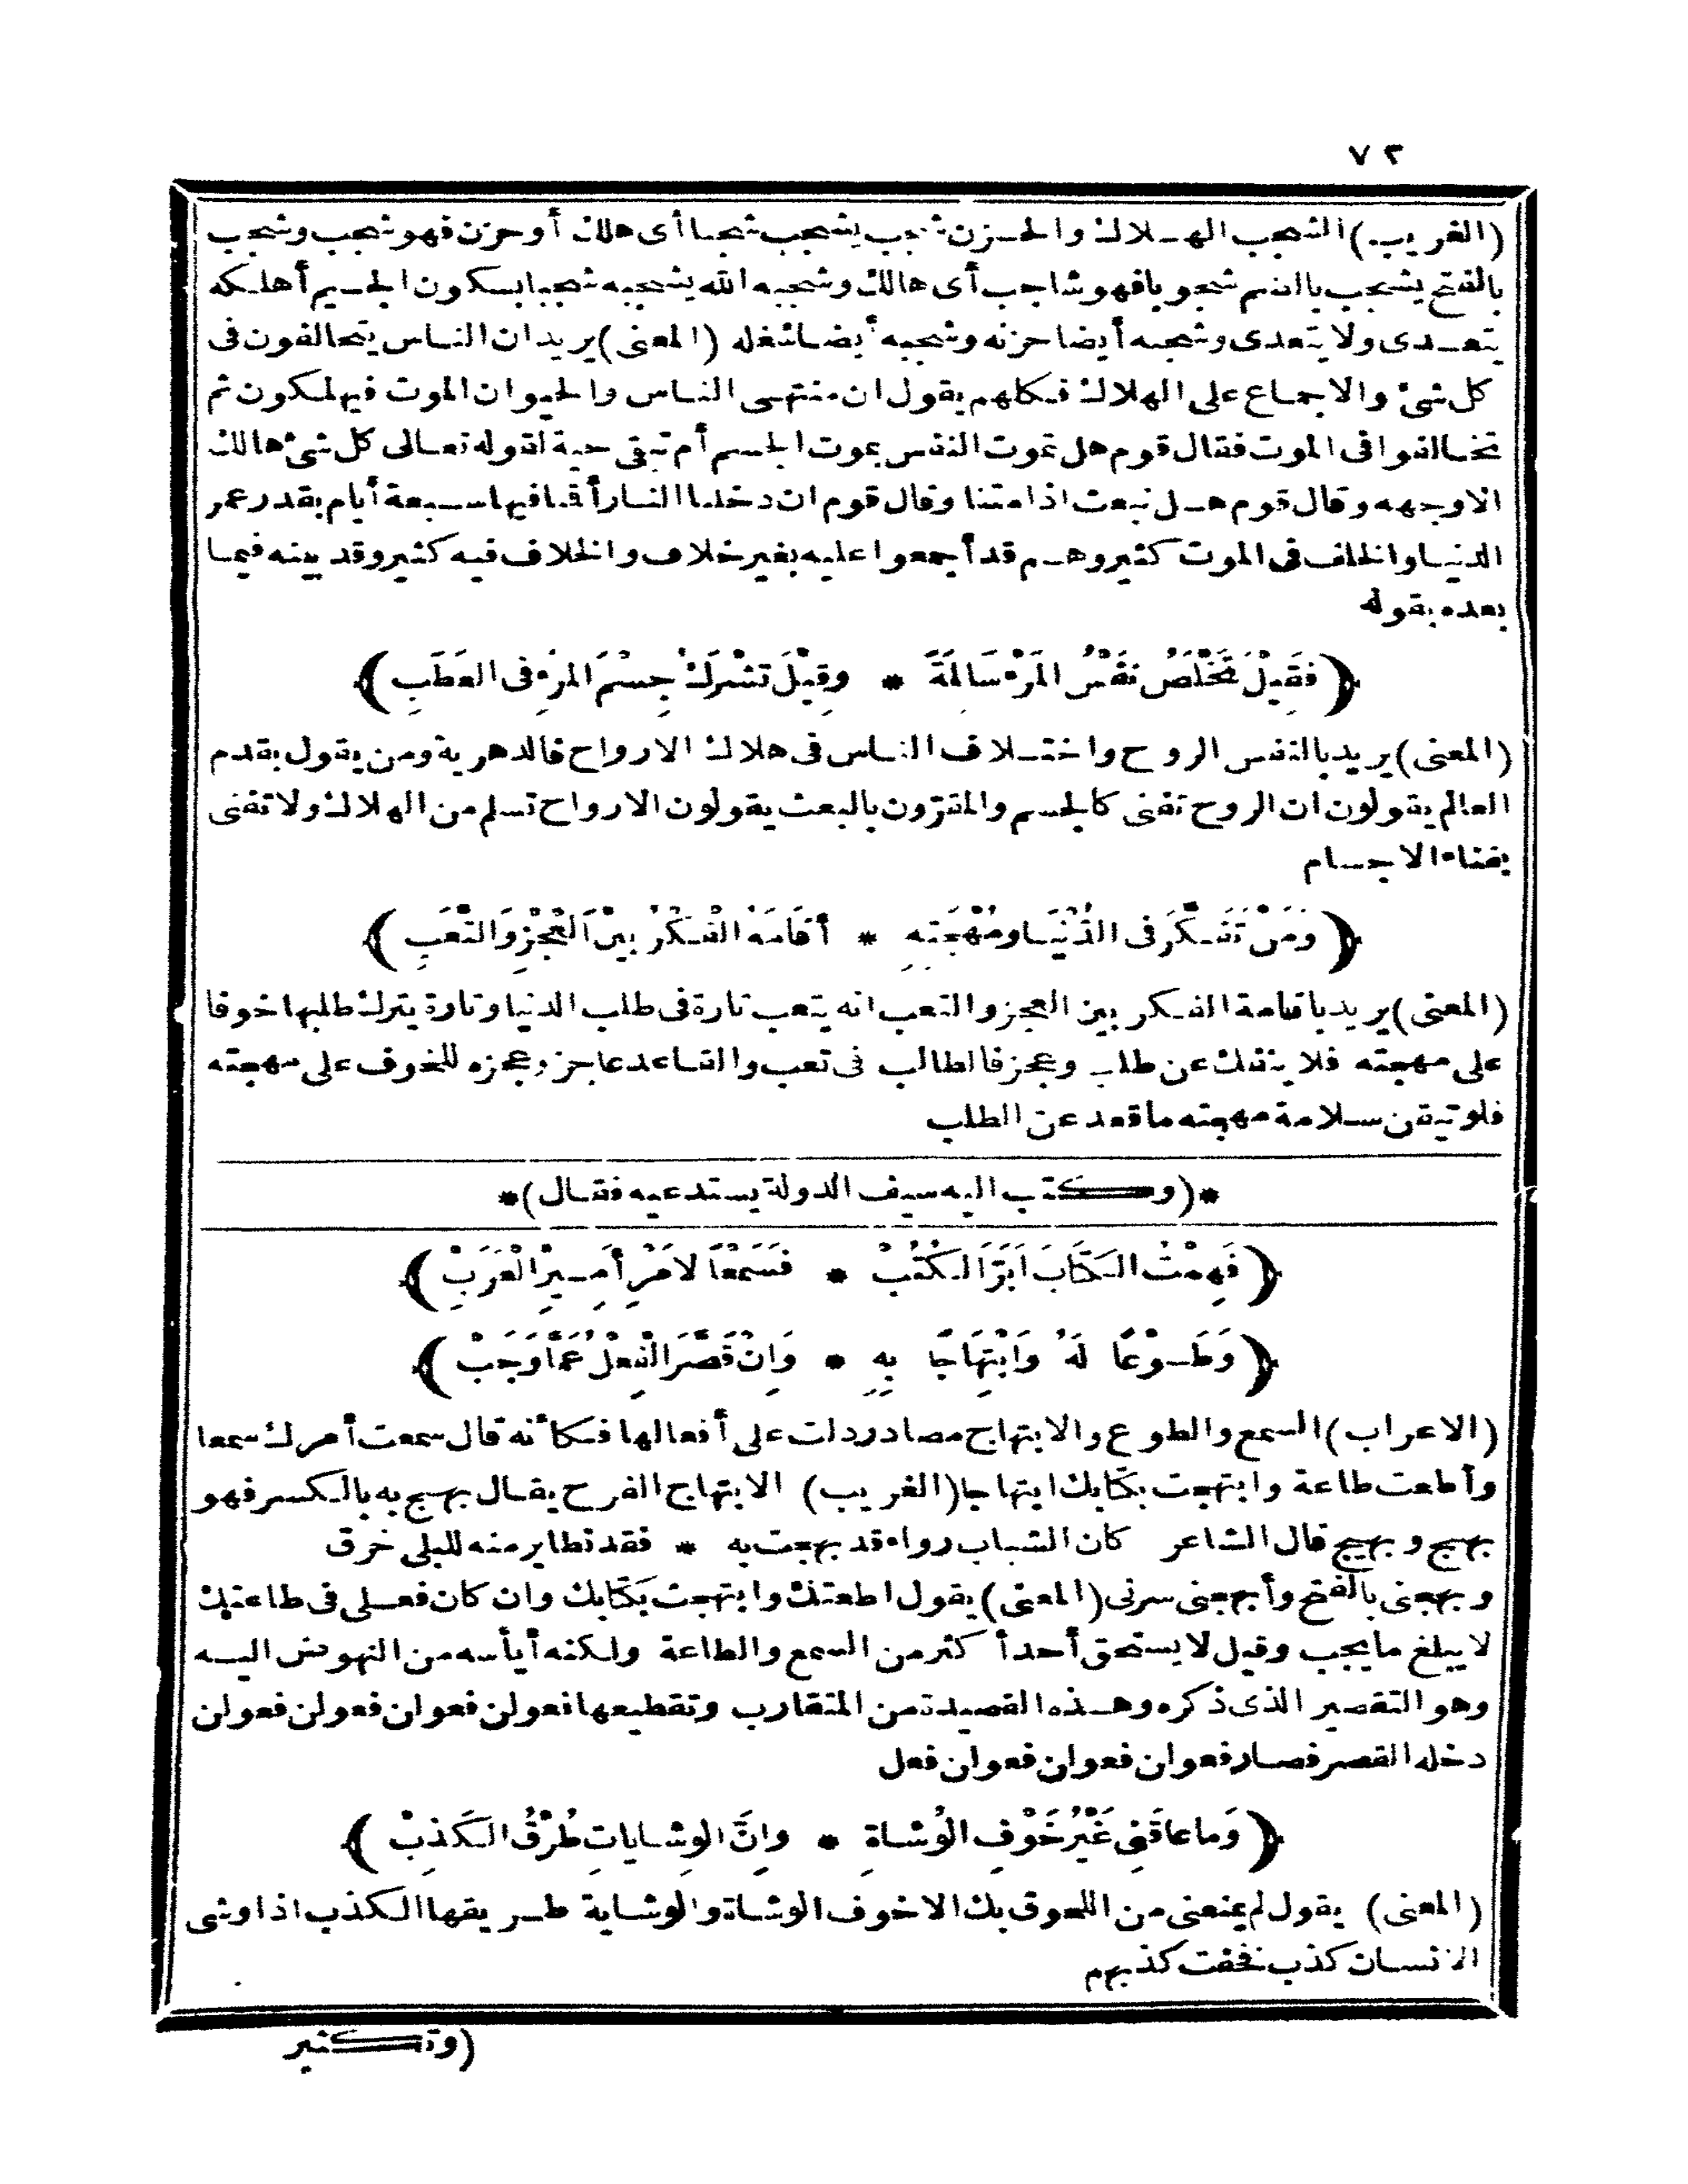 ٧٢
(الغريب) الشجب الهلاك والحزن شجب يشجب شجبا أى هلك أو حزن فهو شجب وشجب
بالفتح يشجب بالضم شجوبا فهو شاجب أى هالك وشجبه الله يشجبه شجبا بسكون الجيم أهلكه
يتعدى ولا يتعدى وشجبه أيضا حزنه وشجبه أيضا شغله (المعنى) يريد ان الناس يتخالفون فى
كل شئ والاجماع على الهلاك فكلهم يقول ان منتهى الناس والحيوان الموت فيهلكون ثم
تخالفوا فى الموت فقال قوم هل تموت النفس بموت الجسم أم تبقى حية لقوله تعالى كل شئ هالك
الا وجهه وقال قوم هل نبعث اذا متنا وقال قوم ان دخلنا النار أقنا فيها سبعة أيام بقدر عمر
الدنيا والخلف فى الموت كثير وهم قد أجمعوا عليه بغير خلاف والخلاف فيه كثير وقد بينه فيما
بعده بقوله
(فَقِيْلَ تَخْلُصُ نَفْسُ المَرْءِ سَالِمَةً * وقِيْلَ تَشْرَكُ جِسْمَ المَرْءِ فى العَطَبِ)
(المعنى) يريد بالنفس الروح واختلاف الناس فى هلاك الارواح فالدهرية ومن يقول بقدم
العالم يقولون ان الروح تفنى كالجسم والمقرّون بالبعث يقولون الارواح تسلم من الهلاك ولا تفنى
بفناء الاجسام
(وَمَنْ تَفَكَّرَ فى الدُّنْيَا ومُهْجَتِهِ * أَقَامَهُ الفِكْرُ بَيْنَ الْعَجْزِ وَالتَّعَبِ)
(المعنى) يريد باقامة الفكر بين العجز والتعب انه يتعب تارة فى طلب الدنيا وتارة يترك طلبها خوفا
على مهجته فلا ينفك عن طلب وعجز فالطالب فى تعب والقاعد عاجز وعجزه للخوف على مهجته
فلو تيقن سلامة مهجته ما قعد عن الطلب
*(وكتب اليه سيف الدولة يستدعيه فقال)*
(فَهِمْتُ الكِتَابَ اَبَرَّ الكُتُبْ * فَسَمْعًا لِاَمْرِ أَمِيرِ الْعَرَبْ)
(وَطَوْعًا لَهُ وَابْتِهَاجًا بِهِ * وَاِنْ قَصَّرَ الْفِعْلُ عَمَّا وَجَبْ)
(الاعراب) السمع والطوع والابتهاج مصادر دلت على أفعالها فكأنه قال سمعت أمرك سمعا
وأطعت طاعة وابتهجت بكتابك ابتهاجا (الغريب) الابتهاج الفرح يقال بهج به بالكسر فهو
بهج وبهيج قال الشاعر كان الشباب رواء قد بهجت به * فقد تطاير منه للبلى خرق
وبهجنى بالفتح وأبهجنى سرنى (المعنى) يقول اطعتك وابتهجت بكتابك وان كان فعلى فى طاعتك
لا يبلغ ما يجب وقيل لا يستحق أحد أكثر من السمع والطاعة ولكنه أيأسه من النهوض اليه
وهو التقصير الذى ذكره وهذه القصيدة من المتقارب وتقطيعها فعولن فعولن فعولن فعولن
دخله القصر فصار فعولن فعولن فعولن فعل
(وَما عاقَنِى غَيْرُ خَوْفِ الوُشاةِ * وإنَّ الوِشاياتِ طُرْقُ الكَذِبْ)
(المعنى) يقول لم يمنعنى من اللحوق بك الا خوف الوشاة والوشاية طريقها الكذب اذا وشى
الانسان كذب فخفت كذبهم
(وتكثير